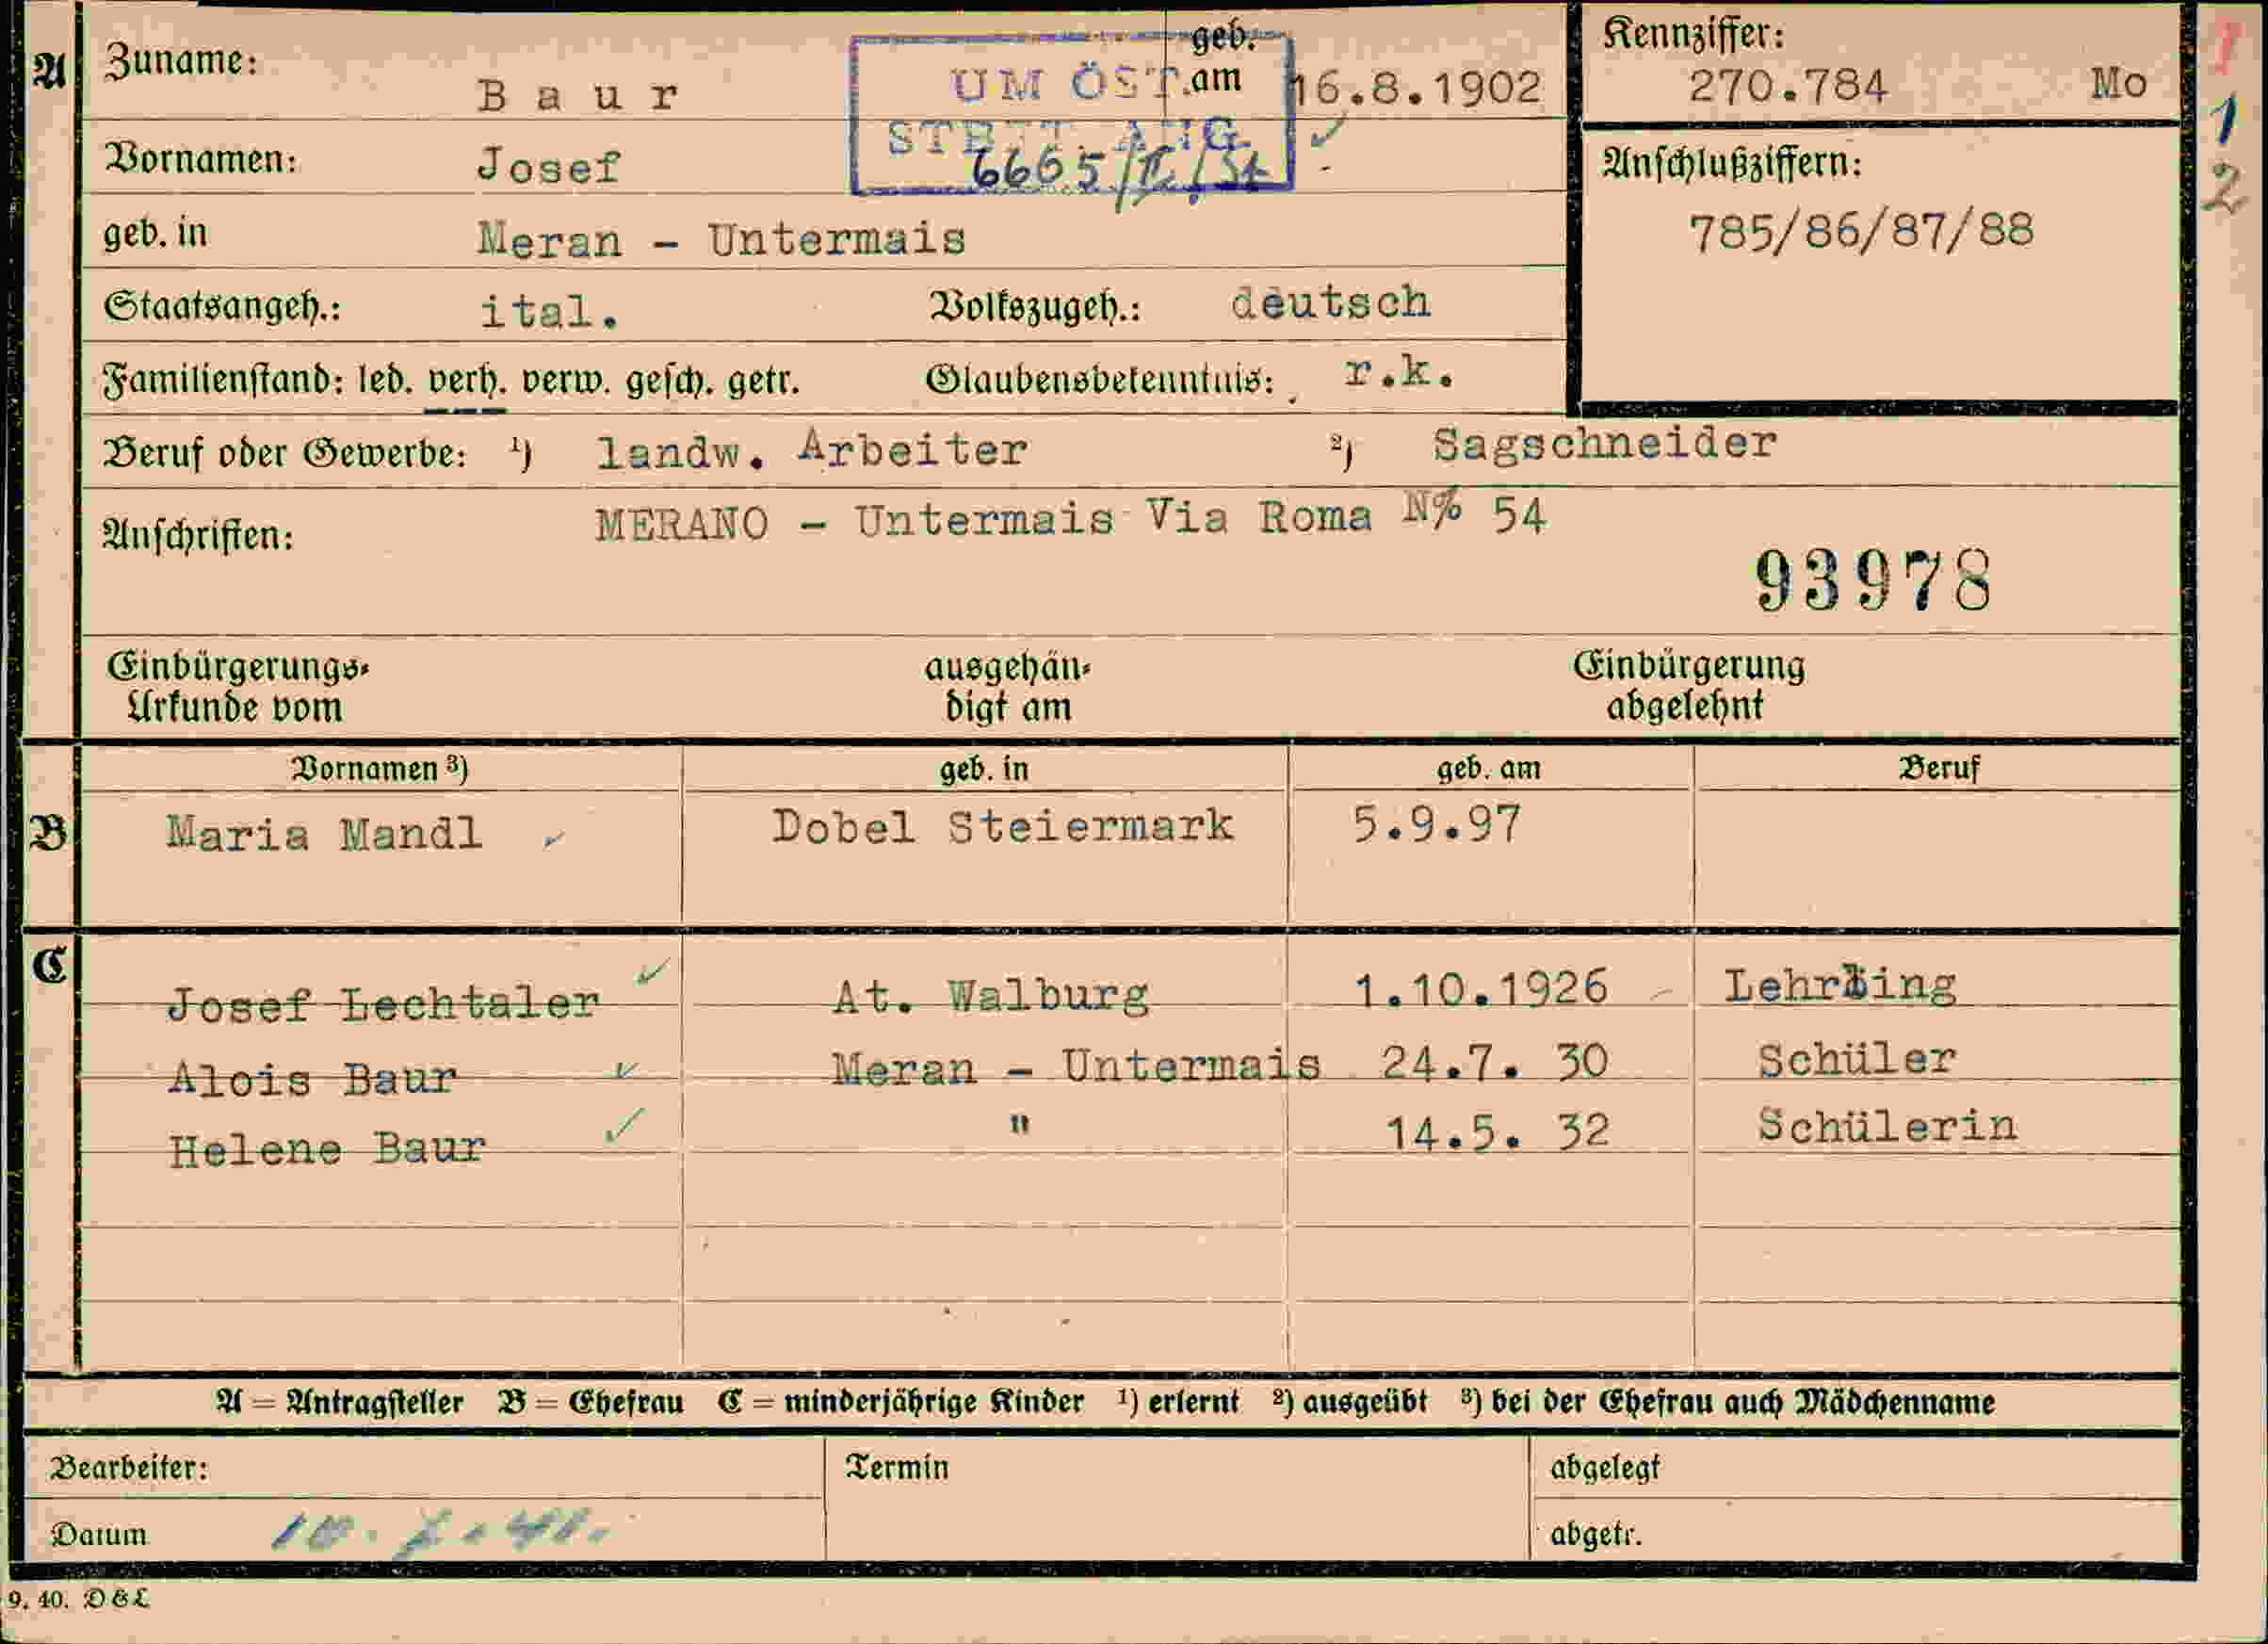 A Zuname: B a u r geb. am 16.8.1902 Kennziffer: 270.784 Mo
UM ÖST.
Vornamen: Josef 6665/II/ Anschlußziffern:
geb. in Meran - Untermais 785/86/87/88
Staatsangeh.: ital. Volkszugeh.: deutsch
Familienstand: led. verh. verw. gesch. getr. Glaubensbekenntnis: r.k.
Beruf oder Gewerbe: 1) landw. Arbeiter 2) Sagschneider
Anschriften: MERANO - Untermais Via Roma N% 54
93978
1
1
2
Einbürgerungs- ausgehän- Einbürgerung
Urkunde vom digt am abgelehnt
Vornamen 3) geb. in geb. am Beruf
B Maria Mandl Dobel Steiermark 5.9.97
C Josef Lechtaler At. Walburg 1.10.1926 Lehrling
Alois Baur Meran - Untermais 24.7. 30 Schüler
Helene Baur " 14.5. 32 Schülerin
A = Antragsteller B = Ehefrau C = minderjährige Kinder 1) erlernt 2) ausgeübt 3) bei der Ehefrau auch Mädchenname
Bearbeiter: Termin abgelegt
Datum abgetr.
9. 40. D&L